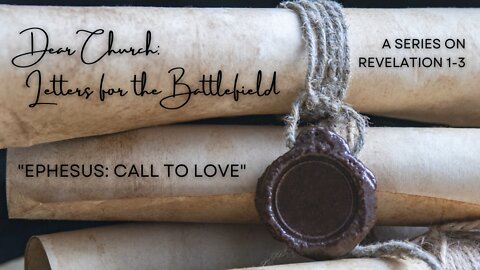 Dear Church:
Letters for the Battlefield
A SERIES ON
REVELATION 1-3
"EPHESUS: CALL TO LOVE"